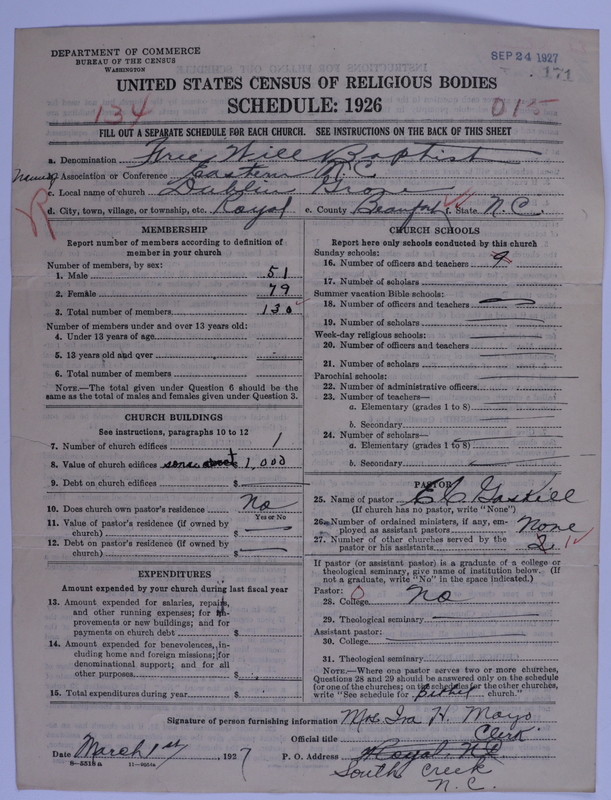 DEPARTMENT OF COMMERCE
BUREAU OF THE CENSUS
WASHINGTON
SEP 24 1927
171
UNITED STATES CENSUS OF RELIGIOUS BODIES
SCHEDULE: 1926
134
015
FILL OUT A SEPARATE SCHEDULE FOR EACH CHURCH. SEE INSTRUCTIONS ON THE BACK OF THIS SHEET
a. Denomination Free Will Baptist
Name of Association or Conference Eastern N.C
c. Local name of church Dublin Grove
d. City, town, village, or township, etc. Royal e. County Beaufort f. State N.C.
MEMBERSHIP
Report number of members according to definition of
member in your church
Number of members, by sex:
1. Male 51
2. Female 79
3. Total number of members 130
Number of members under and over 13 years old:
4. Under 13 years of age
5. 13 years old and over
6. Total number of members
NOTE.—The total given under Question 6 should be the
same as the total of males and females given under Question 3.
CHURCH BUILDINGS
See instructions, paragraphs 10 to 12
7. Number of church edifices 1
8. Value of church edifices $ 1,000
9. Debt on church edifices $
10. Does church own pastor's residence No
Yes or No
11. Value of pastor's residence (if owned by
church) $
12. Debt on pastor's residence (if owned by
church) $
EXPENDITURES
Amount expended by your church during last fiscal year
13. Amount expended for salaries, repairs,
and other running expenses; for im-
provements or new buildings; and for
payments on church debt $
14. Amount expended for benevolences, in-
cluding home and foreign missions; for
denominational support; and for all
other purposes $
15. Total expenditures during year $
CHURCH SCHOOLS
Report here only schools conducted by this church
Sunday schools:
16. Number of officers and teachers 9
17. Number of scholars
Summer vacation Bible schools:
18. Number of officers and teachers
19. Number of scholars
Week-day religious schools:
20. Number of officers and teachers
21. Number of scholars
Parochial schools:
22. Number of administrative officers
23. Number of teachers—
a. Elementary (grades 1 to 8)
b. Secondary
24. Number of scholars—
a. Elementary (grades 1 to 8)
b. Secondary
PASTOR
25. Name of pastor E C Gaskill
(If church has no pastor, write "None")
26. Number of ordained ministers, if any, em-
ployed as assistant pastors None
27. Number of other churches served by the
pastor or his assistants 2 1
If pastor (or assistant pastor) is a graduate of a college or
theological seminary, give name of institution below. (If
not a graduate, write "No" in the space indicated.)
Pastor: 0
28. College No
29. Theological seminary
Assistant pastor:
30. College
31. Theological seminary
NOTE.—Where one pastor serves two or more churches,
Questions 28 and 29 should be answered only on the schedule
for one of the churches; on the schedules for the other churches,
write "See schedule for Bethel church."
Signature of person furnishing information Mrs Ira H. Mayo
Official title Clerk
Date March 1st, 1927 P. O. Address Royal N.C
8-5518a 11-9504a
South Creek
N.C.